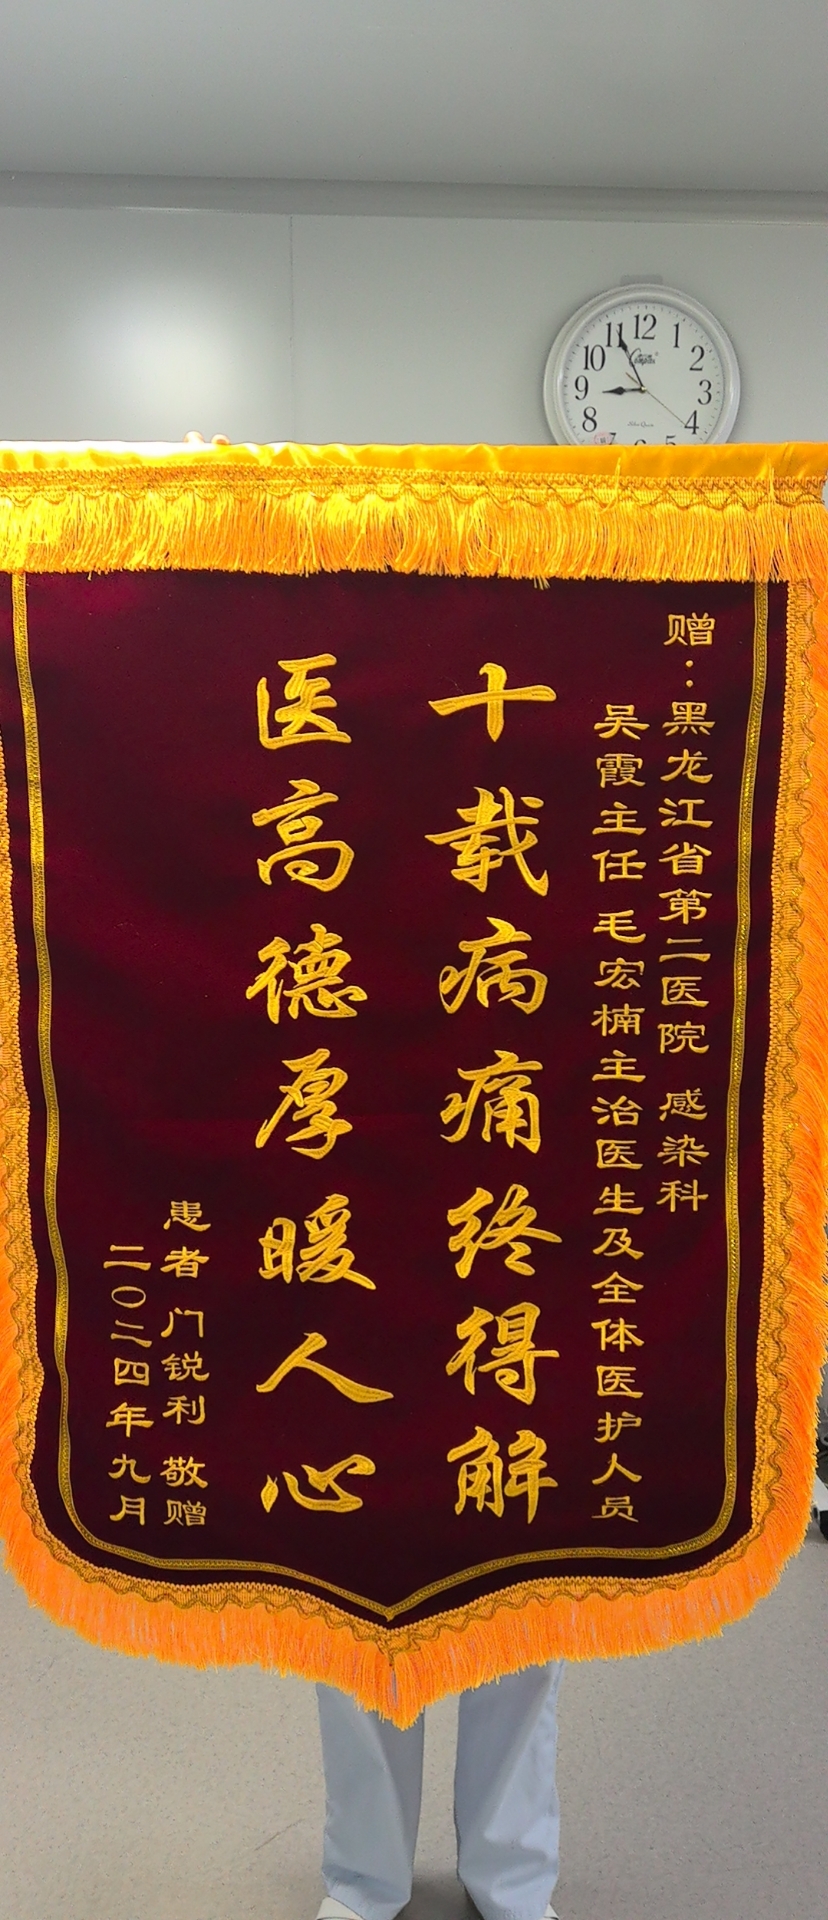 赠：黑龙江省第二医院 感染科
吴霞主任 毛宏楠主治医生及全体医护人员
十载病痛终得解
医高德厚暖人心
患者 门锐利 敬赠
二〇二四年九月
12
1
2
3
4
5
6
7
8
9
10
11
Compas